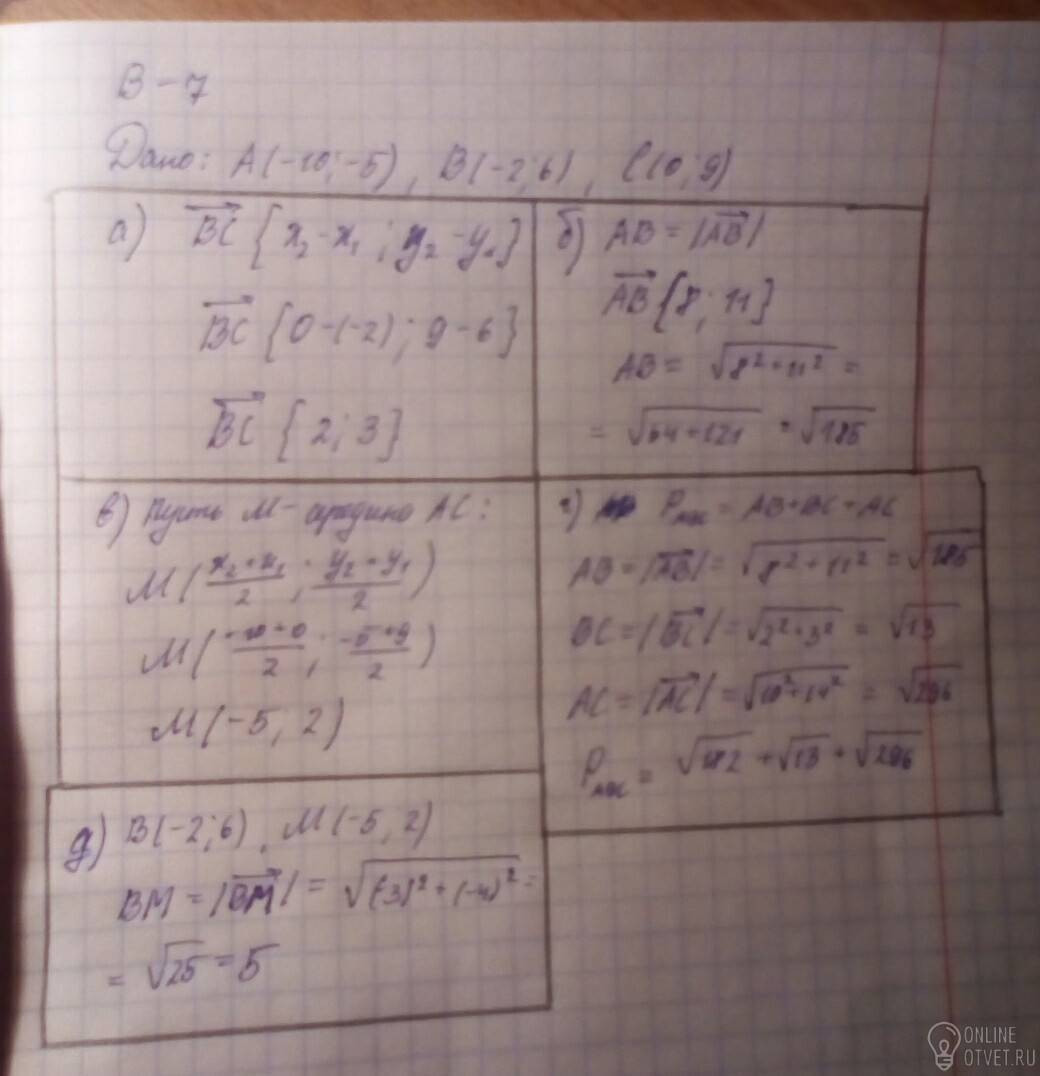 В-7
Дано: A(-10;-5), B(-2;6), C(0;9)
а) BC {x₂-x₁; y₂-y₁}
BC {0-(-2); 9-6}
BC {2;3}
б) AB = |AB|
AB {8; 11}
AB = √8²+11² =
= √64+121 = √185
в) Пусть М- середина AC:
M(x₂+x₁/2; y₂+y₁/2)
M(-10+0/2; -5+9/2)
M(-5, 2)
г) P = AB+BC+AC
AB = |AB| = √8²+11² = √185
BC = |BC| = √2²+3² = √13
AC = |AC| = √10²+14² = √296
P = √182 + √13 + √296
д) B(-2;6), M(-5, 2)
BM = |BM| = √(-3)²+(-4)² =
= √25 = 5
ONLINE
OTVET.RU